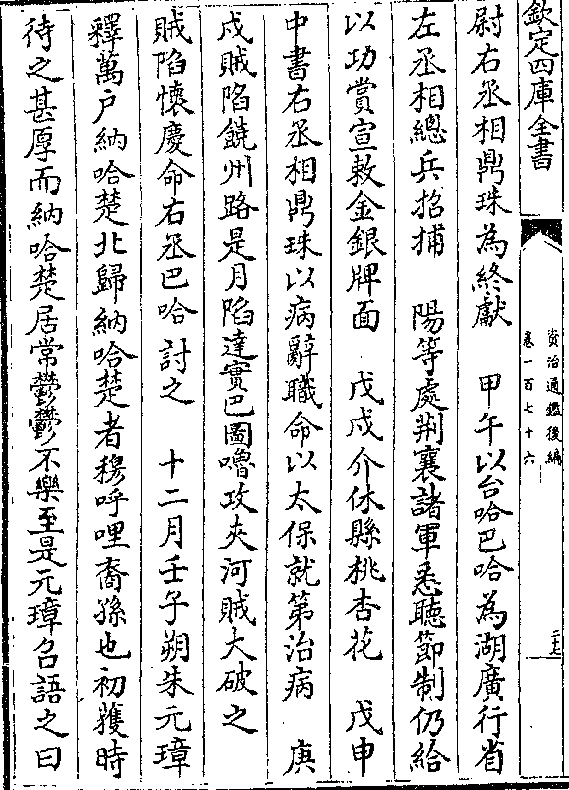 欽定四庫全書
資治通鑑後編
卷一百七十六
尉右丞相鼎珠為終獻　甲午以台哈巴哈為湖廣行省
左丞相總兵招捕　陽等處荆襄諸軍悉聽節制仍給
以功賞宣敕金銀牌面　戊戌介休縣桃杏花　戊申
中書右丞相鼎珠以病辭職命以太保就第治病　庚
戌賊陷饒州路是月陷達實巴圖嚕攻夾河賊大破之
賊陷懷慶命右丞巴哈討之　十二月壬子朔朱元璋
釋萬戸納哈楚北歸納哈楚者穆呼哩裔孫也初獲時
待之甚厚而納哈楚居常鬱鬱不樂至是元璋召語之曰